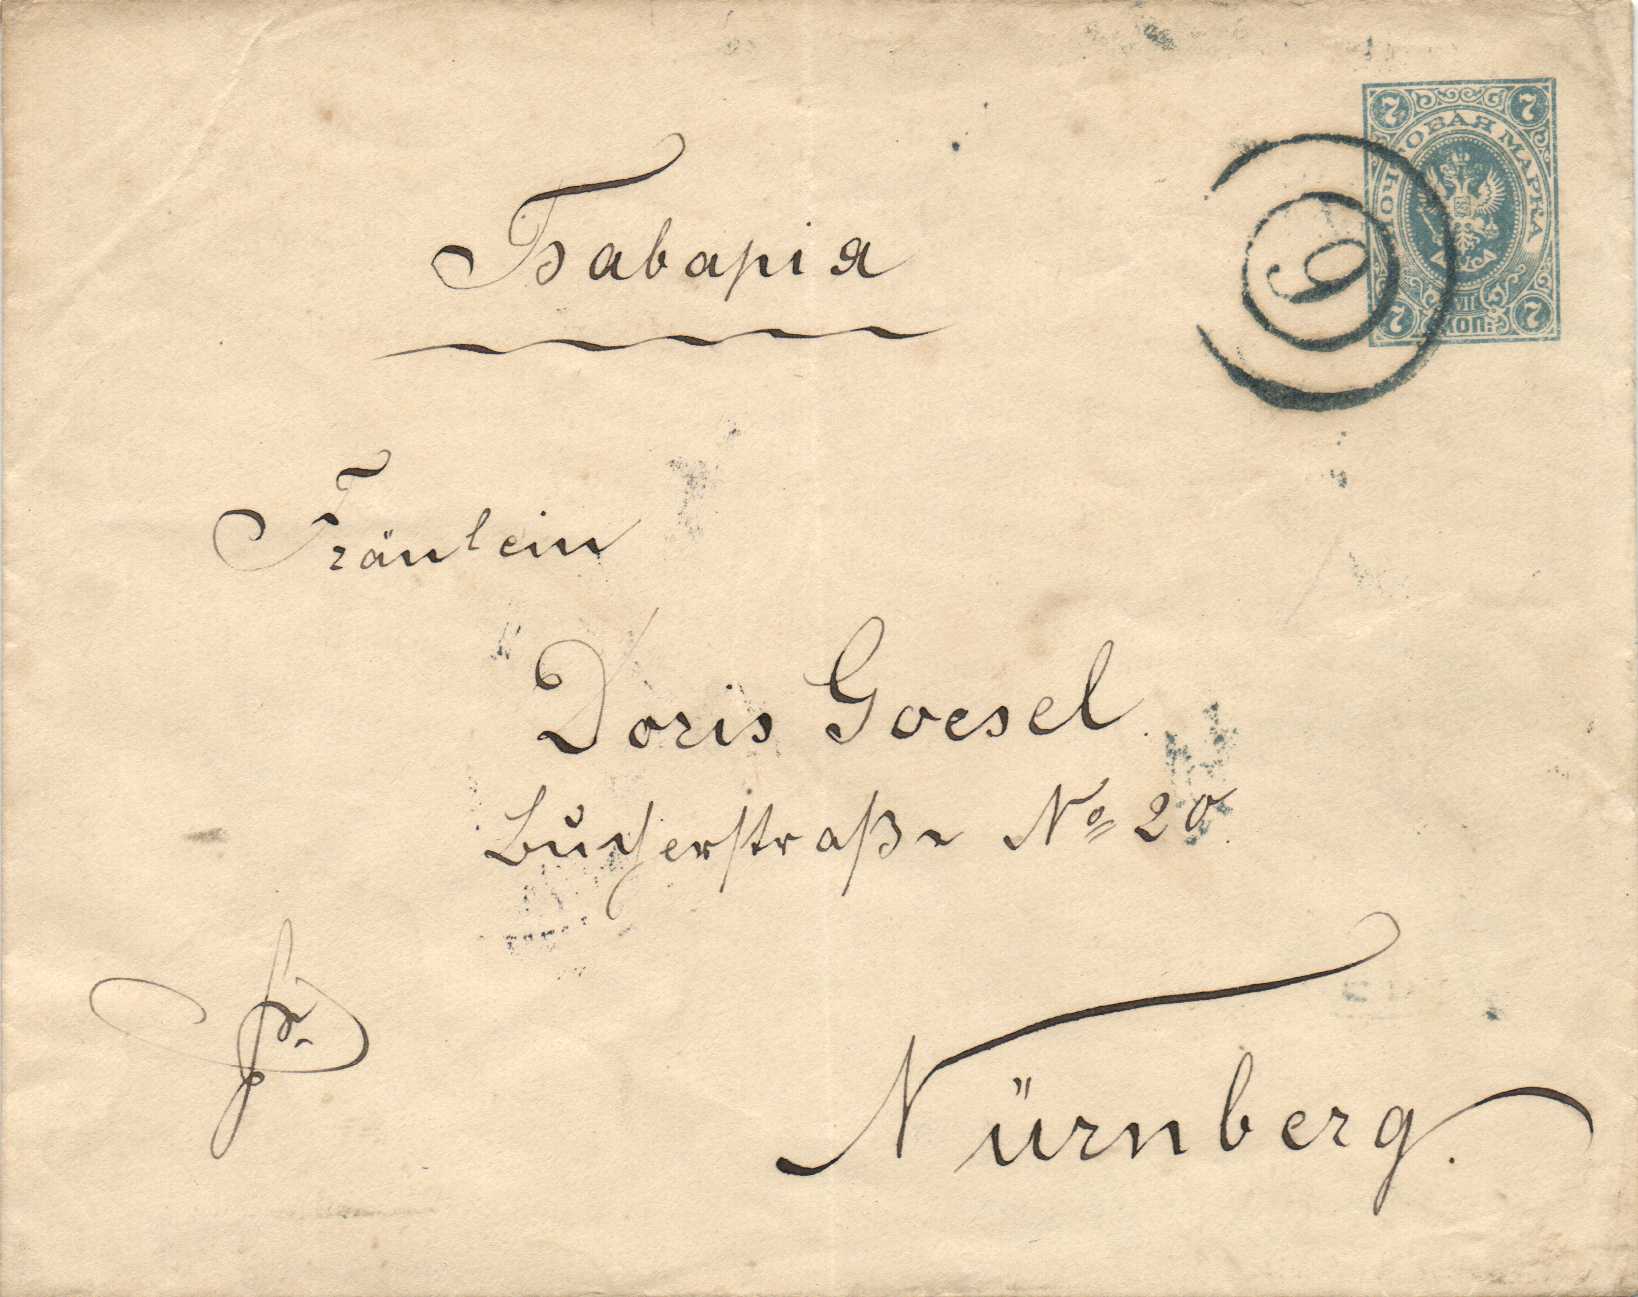 7 7
ПОЧТОВАЯ МАРКА
7 7
КОП.
6
Баварія
Fräulein
Doris Goesel
Bucherstraße No 20.
fr.
Nürnberg.